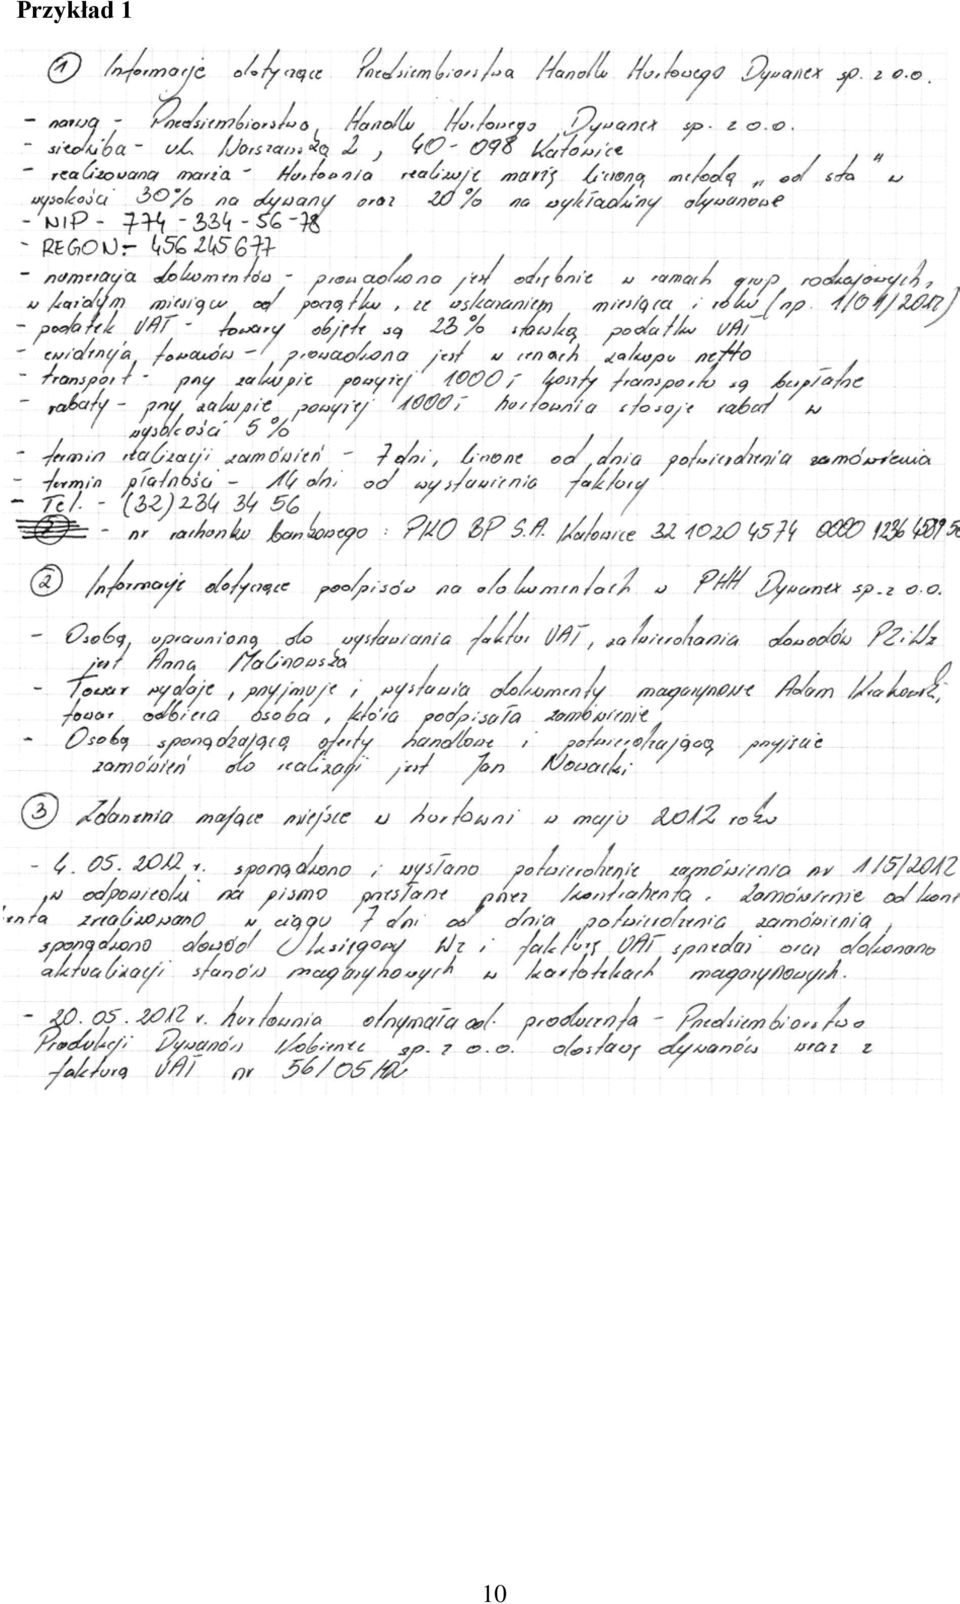 Przykład 1
① Informacje dotyczące Przedsiembiorstwa Handlu Hurtowego Dywanex sp. z o.o.
- nazwą - Przedsiembiorstwo, Handlu Hurtowego Dywanex sp. z o.o.
- siedziba - ul. Warszawska 2, 40-098 Katowice
- realizowana marża - Hurtownia realizuje marżę liczoną metodą „od sta" w
wysokości 30% na dywany oraz 20% na wykładziny dywanowe
- NIP - 774-334-56-78
- REGON - 456245677
- numeracja dokumentów - prowadzona jest odrębnie w ramach grup rodzajowych,
w każdym miesiącu od początku, ze wskazaniem miesiąca i roku (np. 1/01/2012)
- podatek VAT - towary objęte są 23% stawką podatku VAT
- ewidencja towarów - prowadzona jest w cenach zakupu netto
- transport - przy zakupie powyżej 1000 koszty transportu są bezpłatne
- rabaty - przy zakupie powyżej 1000 hurtownia stosuje rabat w
wysokości 5%
- termin realizacji zamówień - 7 dni, liczone od dnia potwierdzenia zamówienia
- termin płatności - 14 dni od wystawienia faktury
- Tel. - (32) 234 34 56
- nr rachunku bankowego : PKO BP S.A. Katowice 32 1020 4574 0000 1236 4589 56
② Informacje dotyczące podpisów na dokumentach w PHH Dywanex sp. z o.o.
- Osobą uprawnioną do wystawiania faktur VAT, zatwierdzania dowodów PZ i Wz
jest Anna Malinowska
- Towar wydaje, przyjmuje i wystawia dokumenty magazynowe Adam Krakowski,
towar odbiera osoba, która podpisała zamówienie
- Osobą sporządzającą oferty handlowe i potwierdzającą przyjęcie
zamówień do realizacji jest Jan Nowacki
③ Zdarzenia mające miejsce w hurtowni w maju 2012 roku
- 4.05.2012 r. sporządzono i wysłano potwierdzenie zamówienia nr 1/5/2012
w odpowiedzi na pismo przesłane przez kontrahenta. Zamówienie od kont
enta zrealizowano w ciągu 7 dni od dnia potwierdzenia zamówienia,
sporządzono dowód księgowy Wz i fakturę VAT sprzedaż oraz dokonano
aktualizacji stanów magazynowych w kartotekach magazynowych.
- 20.05.2012 r. hurtownia otrzymała od producenta - Przedsiembiorstwo
Produkcji Dywanów Kobierzec sp. z o.o. dostawę dywanów wraz z
fakturą VAT nr 56/05/12
10